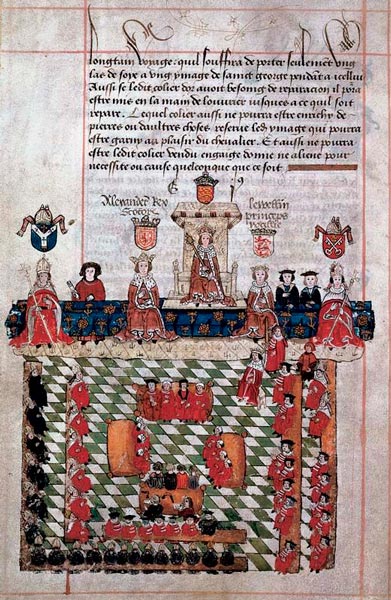 longtain voyage: quil souffira de porter seulemēt vng
las de soye a vng ymage de sainct george pendāt a icelluy
Aussi se ledit colier dor avoit besoing de reparacion il pora
estre mis en la main de louurier iusques a ce quil soit
repare. Lequel colier aussi ne pourra estre enrichy de
pierres ou daultres choses reserue led ymage qui pourra
estre garny au plaisir du cheualier. Et aussi ne pourra
estre ledit colier vendu engaige donne ne aliene pour
necessite ou cause quelconque que ce soit.
E
Alexander Rex
Scotorū
Lewellin
princeps